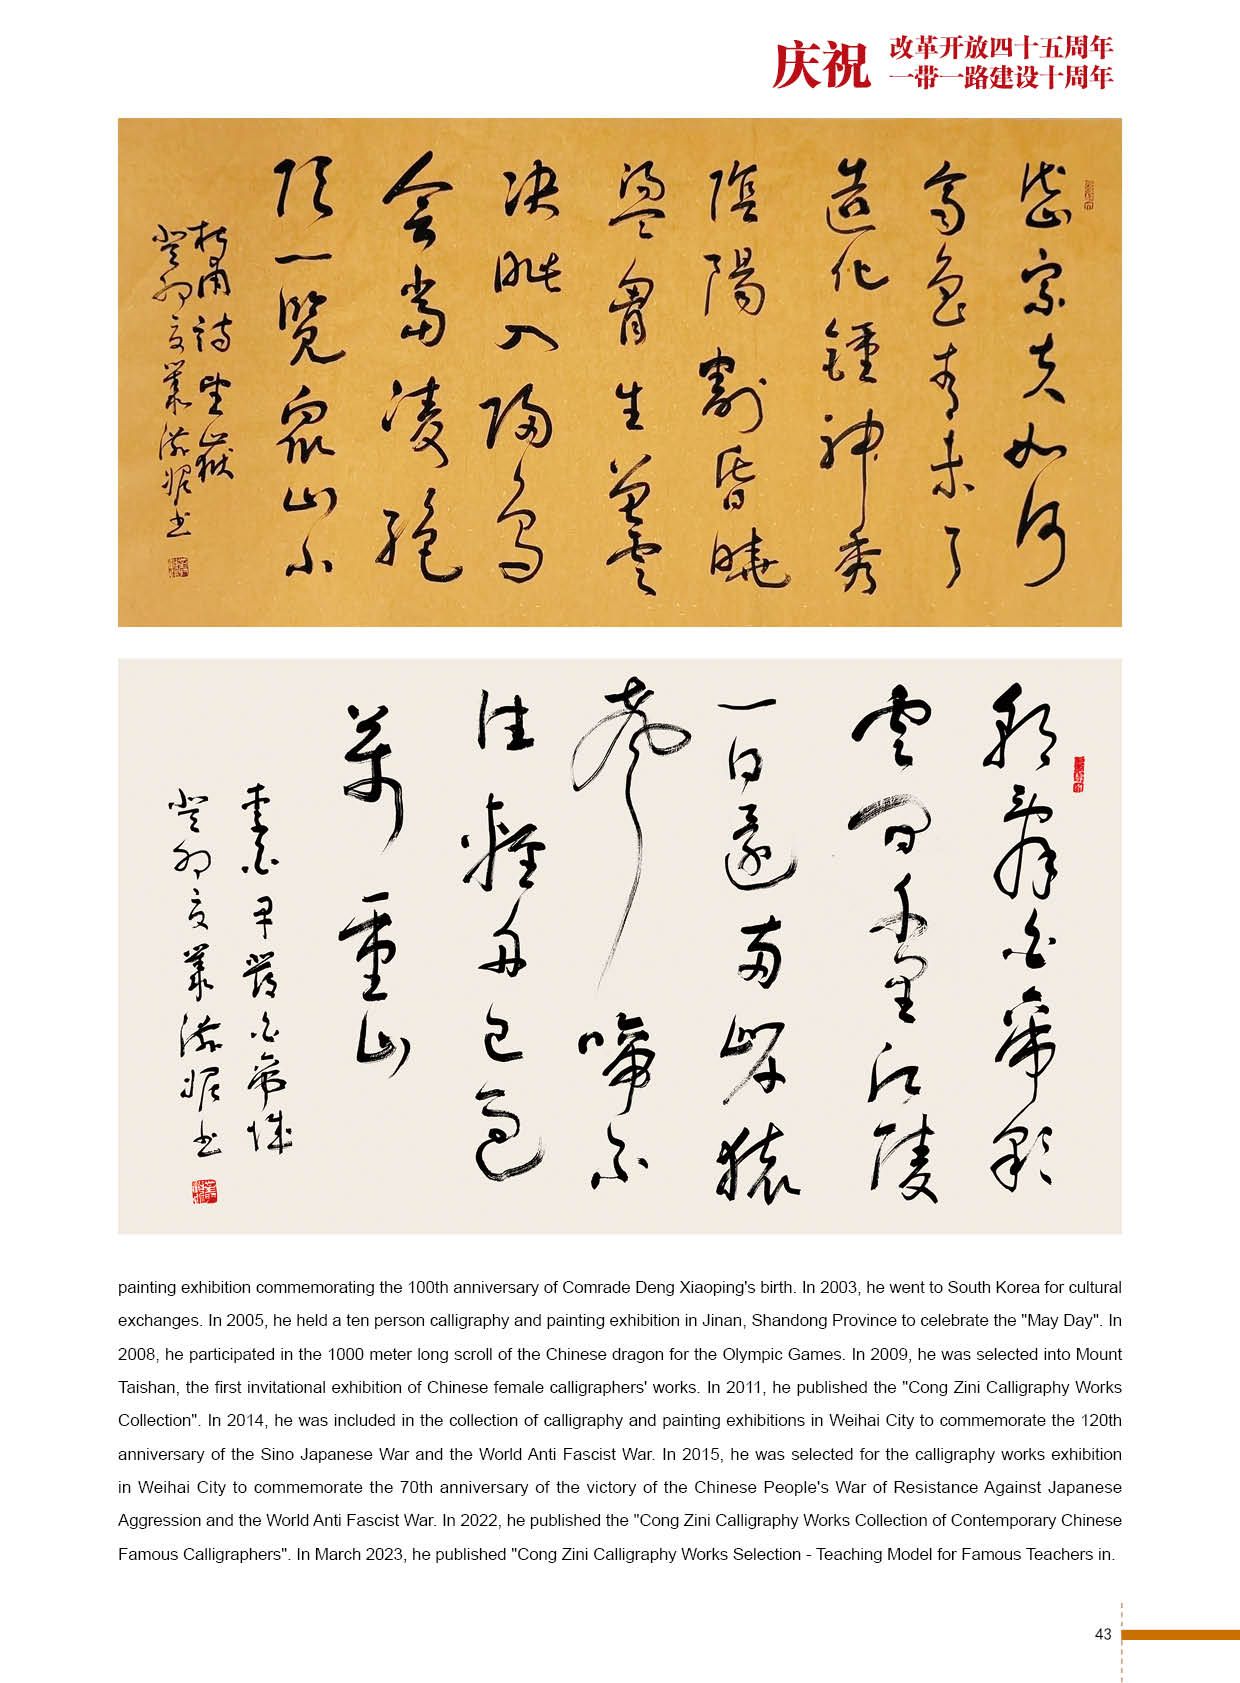 庆祝
改革开放四十五周年
一带一路建设十周年
岱宗夫如何
齊魯青未了
造化鍾神秀
陰陽割昏曉
盪胸生曾雲
决眦入歸鳥
會當凌絶
頂一覽衆山小
杜甫詩望嶽
癸卯夏叢滋妮书
朝辭白帝彩
雲間千里江陵
一日還兩岸猿
聲啼不
住輕舟已過
萬重山
李白早發白帝城
癸卯夏叢滋妮书
painting exhibition commemorating the 100th anniversary of Comrade Deng Xiaoping's birth. In 2003, he went to South Korea for cultural
exchanges. In 2005, he held a ten person calligraphy and painting exhibition in Jinan, Shandong Province to celebrate the "May Day". In
2008, he participated in the 1000 meter long scroll of the Chinese dragon for the Olympic Games. In 2009, he was selected into Mount
Taishan, the first invitational exhibition of Chinese female calligraphers' works. In 2011, he published the "Cong Zini Calligraphy Works
Collection". In 2014, he was included in the collection of calligraphy and painting exhibitions in Weihai City to commemorate the 120th
anniversary of the Sino Japanese War and the World Anti Fascist War. In 2015, he was selected for the calligraphy works exhibition
in Weihai City to commemorate the 70th anniversary of the victory of the Chinese People's War of Resistance Against Japanese
Aggression and the World Anti Fascist War. In 2022, he published the "Cong Zini Calligraphy Works Collection of Contemporary Chinese
Famous Calligraphers". In March 2023, he published "Cong Zini Calligraphy Works Selection - Teaching Model for Famous Teachers in.
43